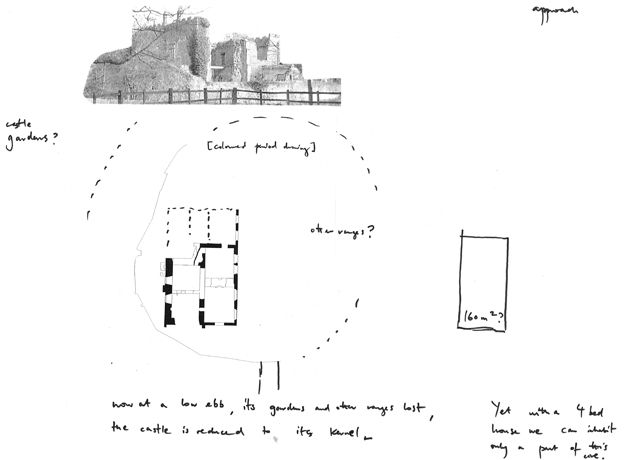 approach
castle
gardens?
[coloured period drawing]
other ranges?
160m²?
now at a low ebb, its gardens and other ranges lost,
the castle is reduced to its kernel
Yet with a 4 bed
house we can inhabit
only a part of this
one.